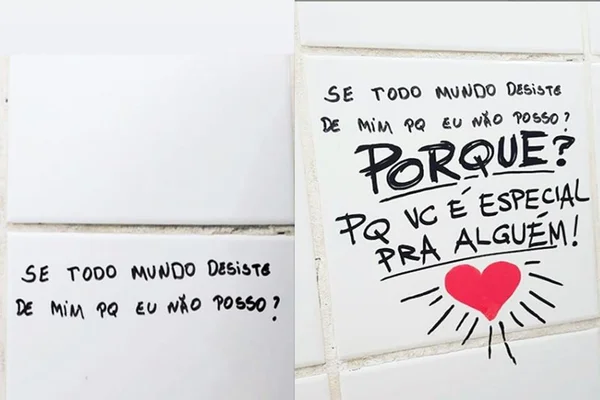 SE TODO MUNDO DESISTE
DE MIM PQ EU NÃO POSSO?
SE TODO MUNDO DESISTE
DE MIM PQ EU NÃO POSSO?
PORQUE?
PQ VC É ESPECIAL
PRA ALGUÉM!